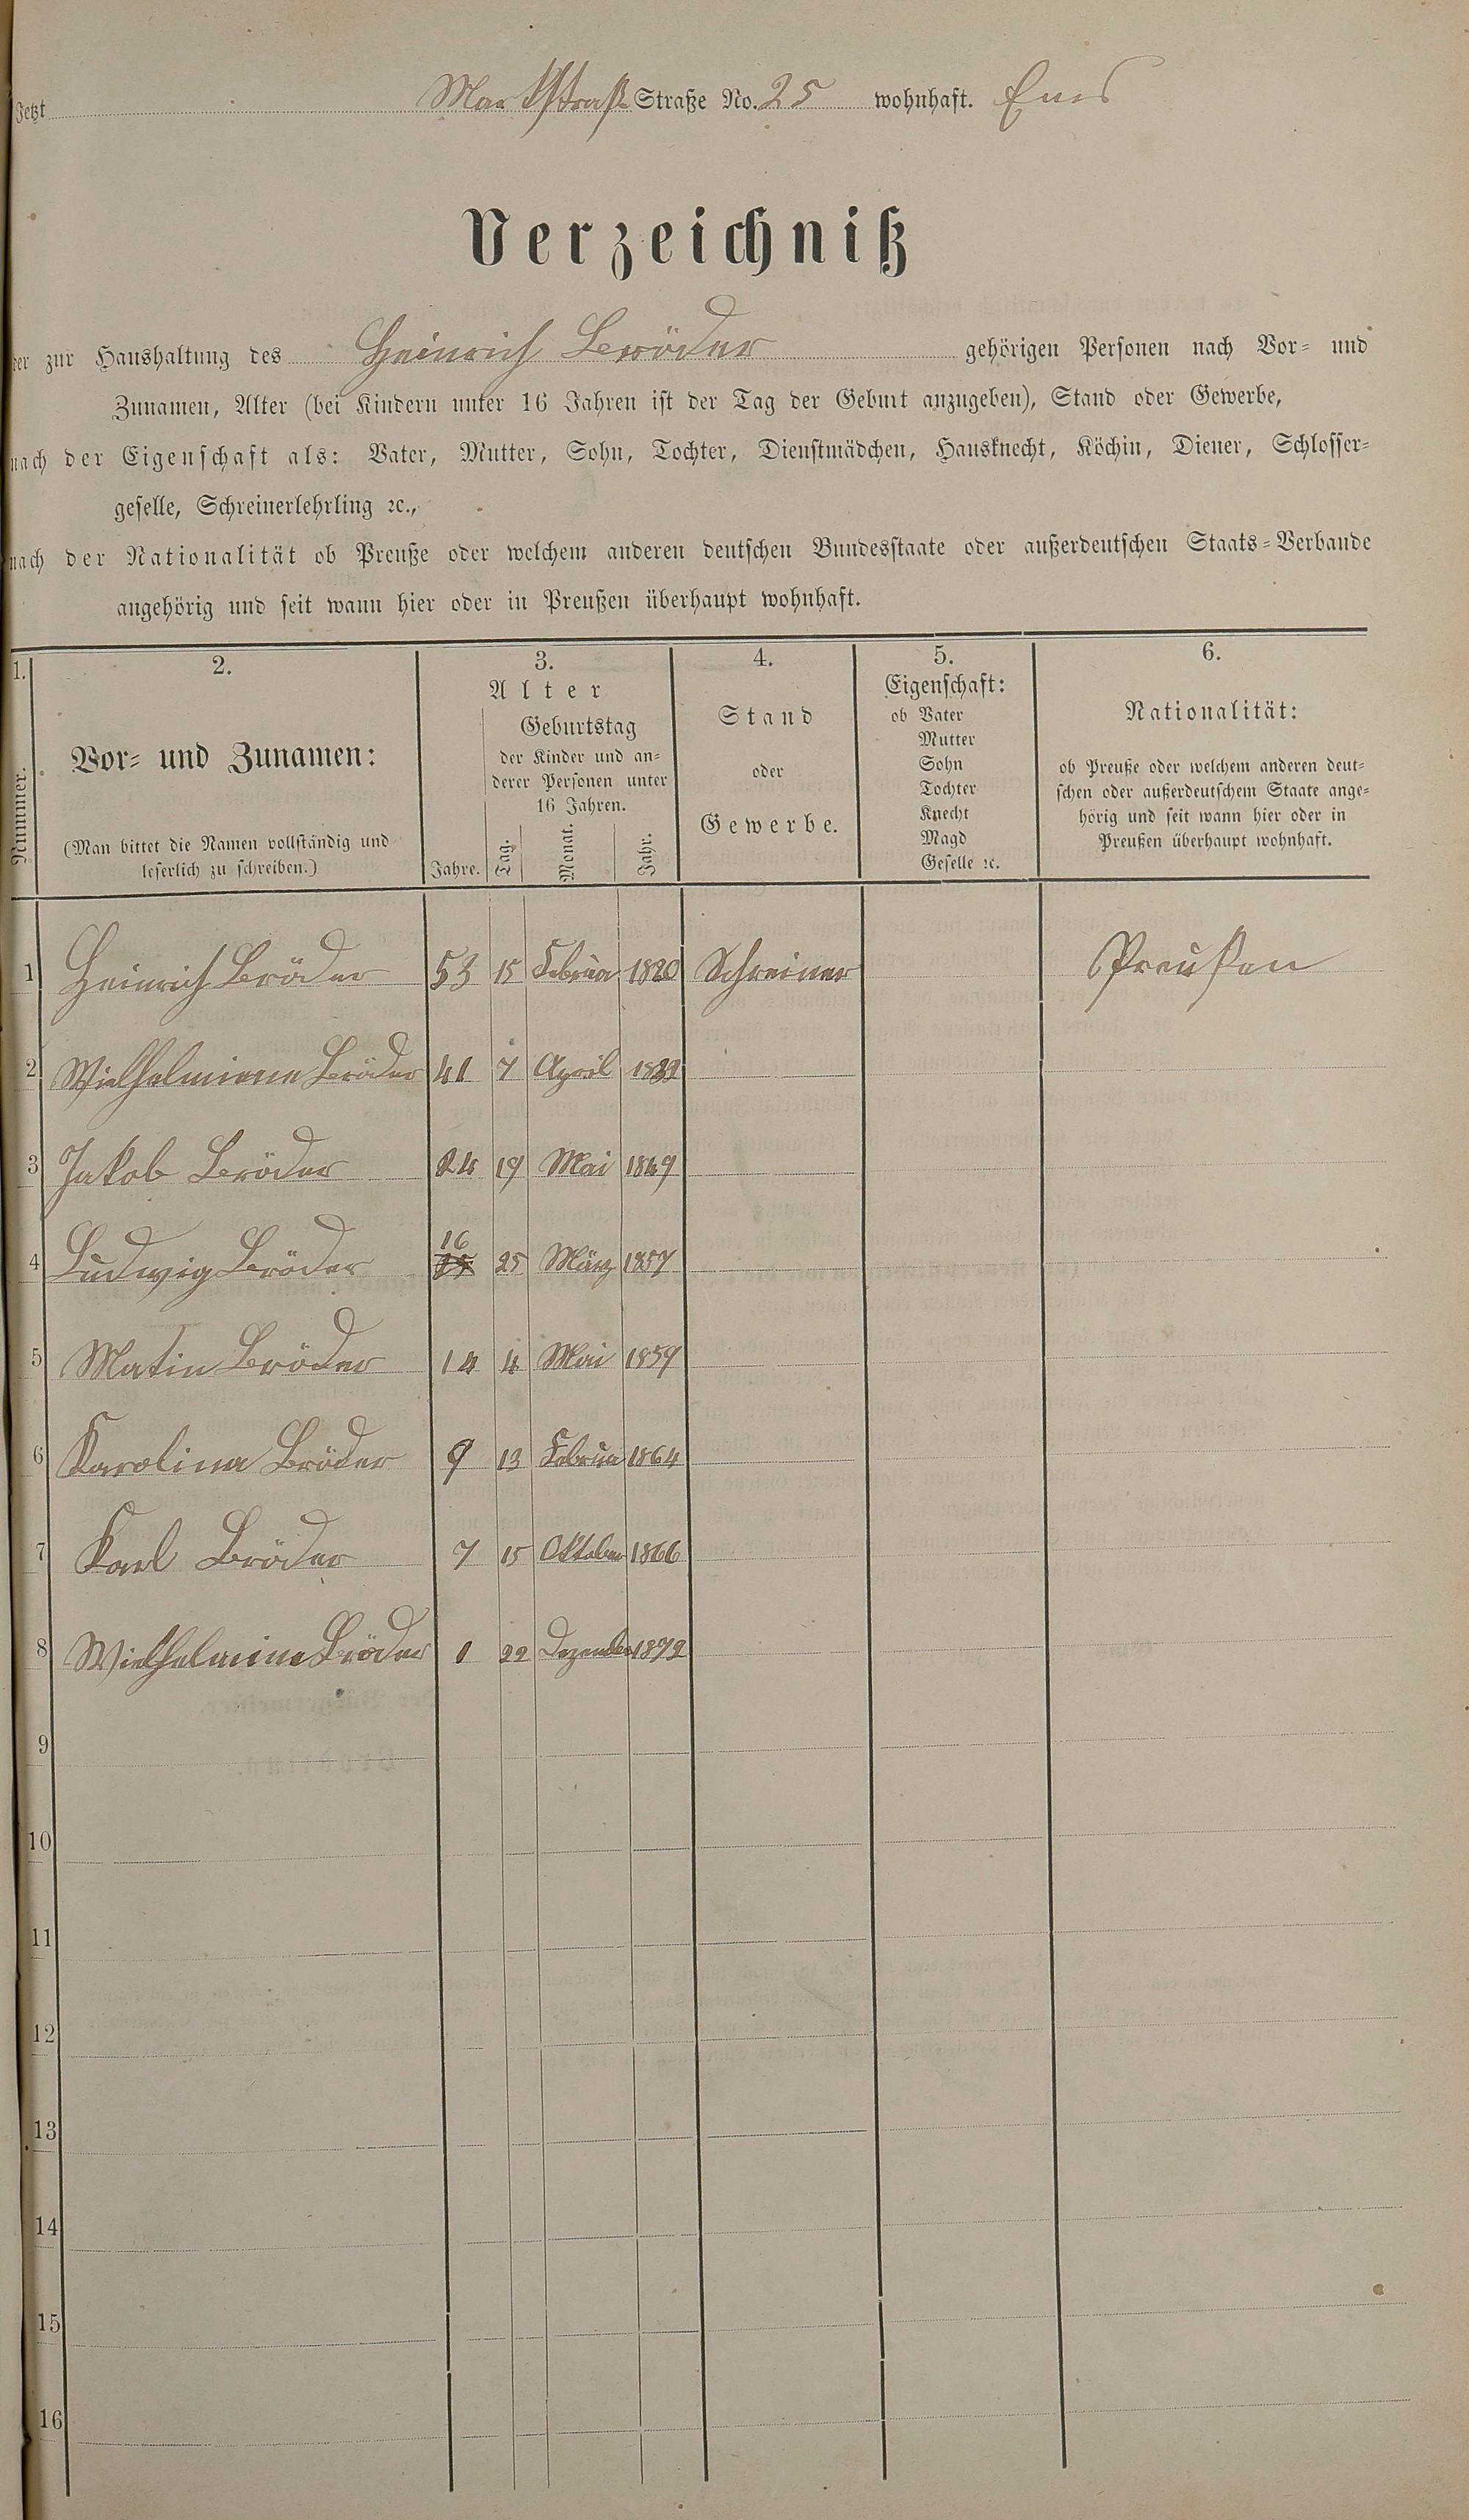 Jetzt Marktstraße Straße No. 25 wohnhaft. Ems
Verzeichniß
der zur Haushaltung des Heinrich Bröder gehörigen Personen nach Vor- und
Zunamen, Alter (bei Kindern unter 16 Jahren ist der Tag der Geburt anzugeben), Stand oder Gewerbe,
nach der Eigenschaft als: Vater, Mutter, Sohn, Tochter, Dienstmädchen, Hausknecht, Köchin, Diener, Schlosser-
geselle, Schreinerlehrling ꝛc.,
nach der Nationalität ob Preuße oder welchem anderen deutschen Bundesstaate oder außerdeutschen Staats-Verbande
angehörig und seit wann hier oder in Preußen überhaupt wohnhaft.
1. 2. 3. 4. 5. 6.
Nummer.
Vor- und Zunamen:
(Man bittet die Namen vollständig und
leserlich zu schreiben.)
Alter
Geburtstag
der Kinder und an-
derer Personen unter
16 Jahren.
Jahre. Tag. Monat. Jahr.
Stand
oder
Gewerbe.
Eigenschaft:
ob Vater
Mutter
Sohn
Tochter
Knecht
Magd
Geselle ꝛc.
Nationalität:
ob Preuße oder welchem anderen deut-
schen oder außerdeutschem Staate ange-
hörig und seit wann hier oder in
Preußen überhaupt wohnhaft.
1 Heinrich Bröder 53 15 Februar 1820 Schreiner Preußen
2 Wielhelmiene Bröder 41 7 April
3 Jakob Bröder 24 19 Mai 1849
4 Ludwig Bröder 16 25 März 1857
5 Matin Bröder 14 4 Mai 1859
6 Karolina Bröder 9 13 Februar 1864
7 Karl Bröder 7 15 Oktober 1866
8 Wielhelmine Bröder 1 22 Dezember 1872
9
10
11
12
13
14
15
16